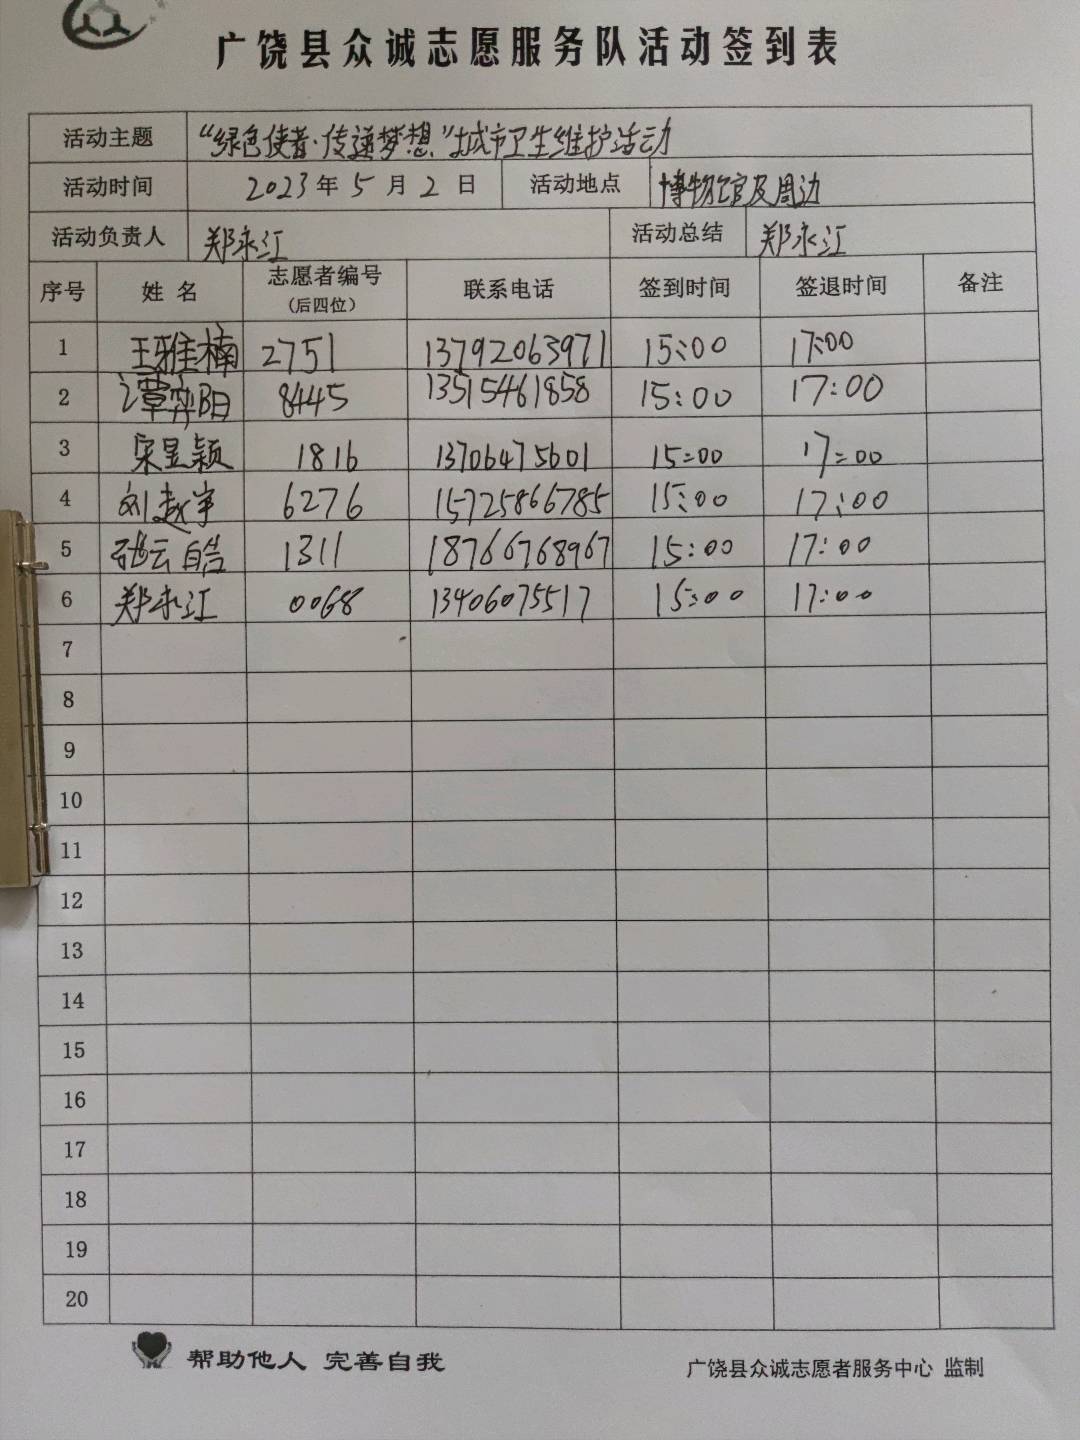 广饶县众诚志愿服务队活动签到表
活动主题 “绿色使者·传递梦想”城市卫生维护活动
活动时间 2023年5月2日 活动地点 博物馆及周边
活动负责人 郑永江 活动总结 郑永江
序号 姓名 志愿者编号 联系电话 签到时间 签退时间 备注
(后四位)
1 王雅楠 2751 13792063971 15:00 17:00
2 谭奕阳 8445 13515461858 15:00 17:00
3 宋昱颖 1816 13706475601 15:00 17:00
4 刘赵宇 6276 15725866785 15:00 17:00
5 张云皓 1311 18766768967 15:00 17:00
6 郑永江 0068 13406075517 15:00 17:00
7
8
9
10
11
12
13
14
15
16
17
18
19
20
帮助他人 完善自我
广饶县众诚志愿者服务中心 监制